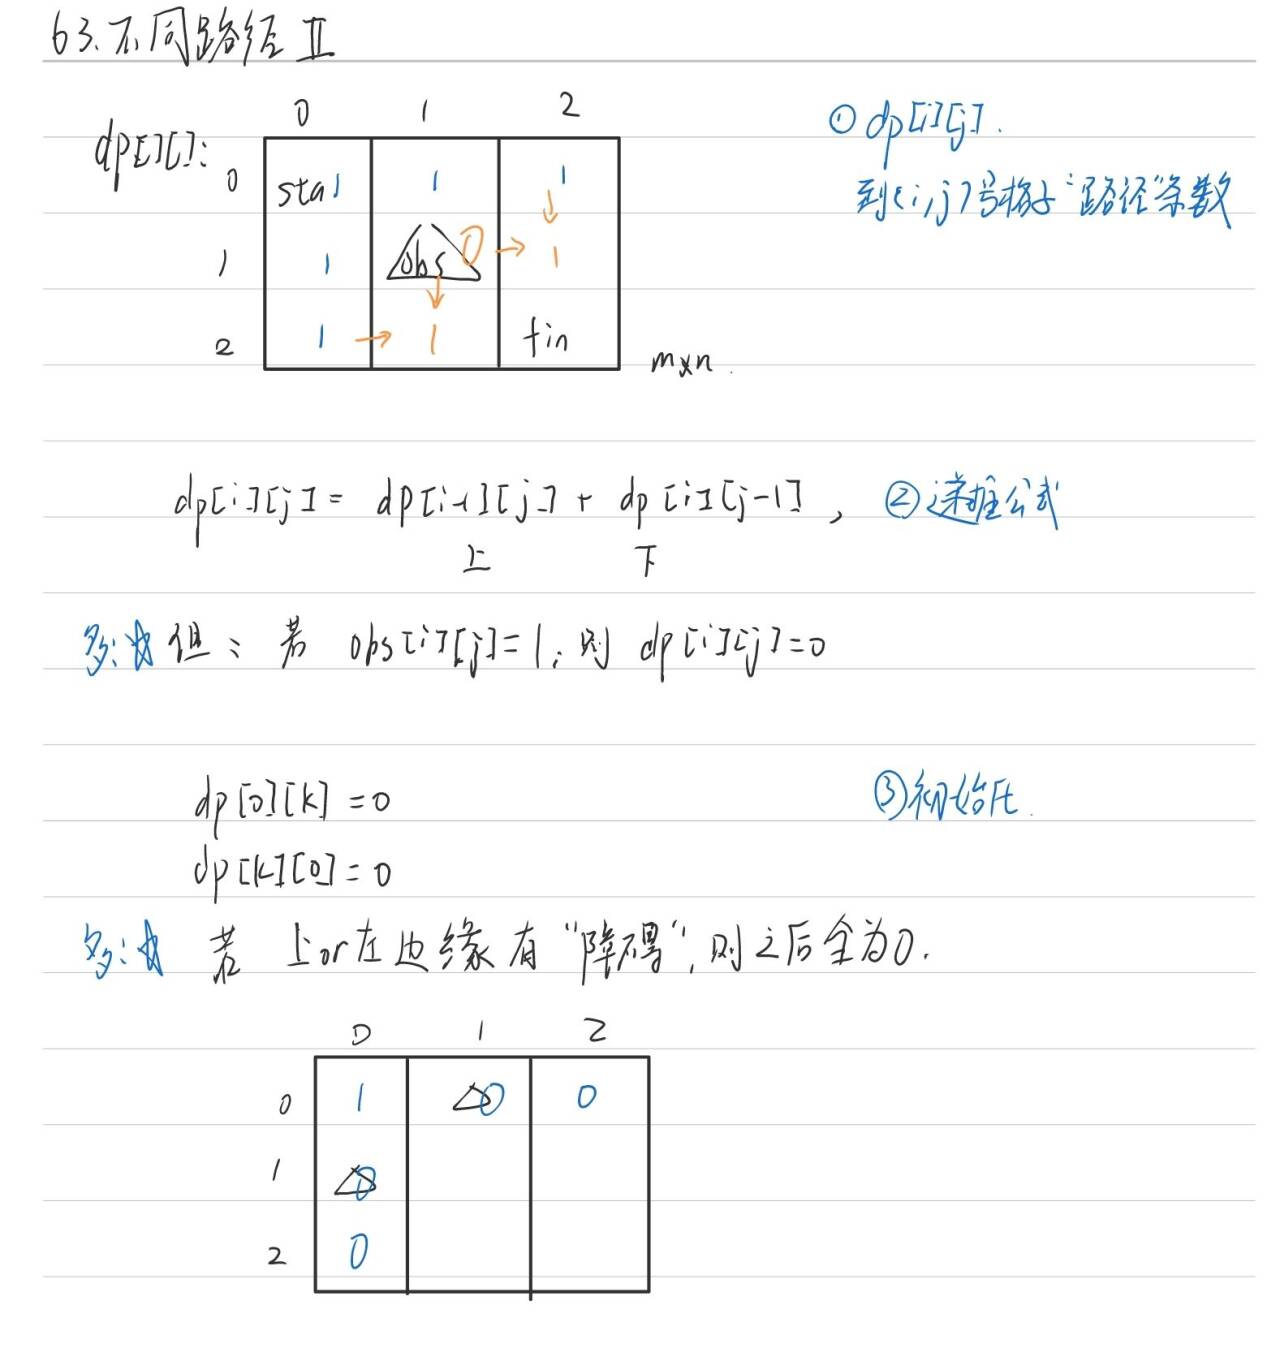 63.不同路径 II
dp[][]: 0 1 2
0 sta 1 1 1
1 1 obs 0 → 1
2 1 → 1 fin
m×n.
① dp[i][j].
到(i,j)号格子“路径”条数
dp[i][j] = dp[i-1][j] + dp[i][j-1], ②递推公式
上 下
多:放 但: 若 obs[i][j]=1, 则 dp[i][j]=0
dp[0][k]=0 ③初始化.
dp[k][0]=0
若 上or左边缘有“障碍”,则之后全为0.
0 1 2
0 1 △0 0
1 △0
2 0